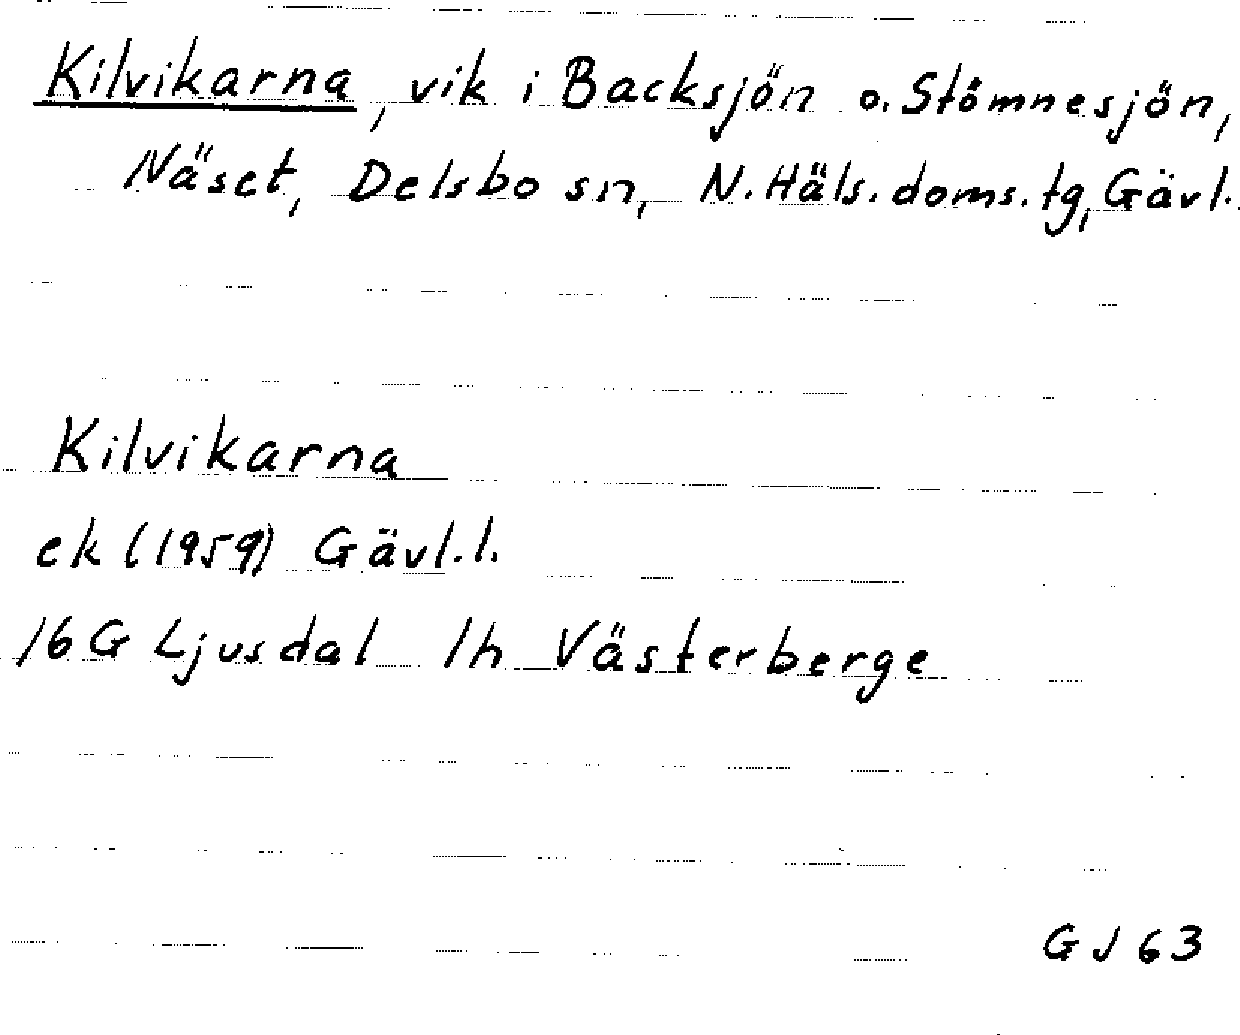 Kilvikarna, vik i Backsjön o. Stömnesjön,
Näset, Delsbo sn, N. Häls. doms. tg, Gävl.
Kilvikarna
ek (1959) Gävl. l.
16 G Ljusdal 1h Västerberge
GJ 63